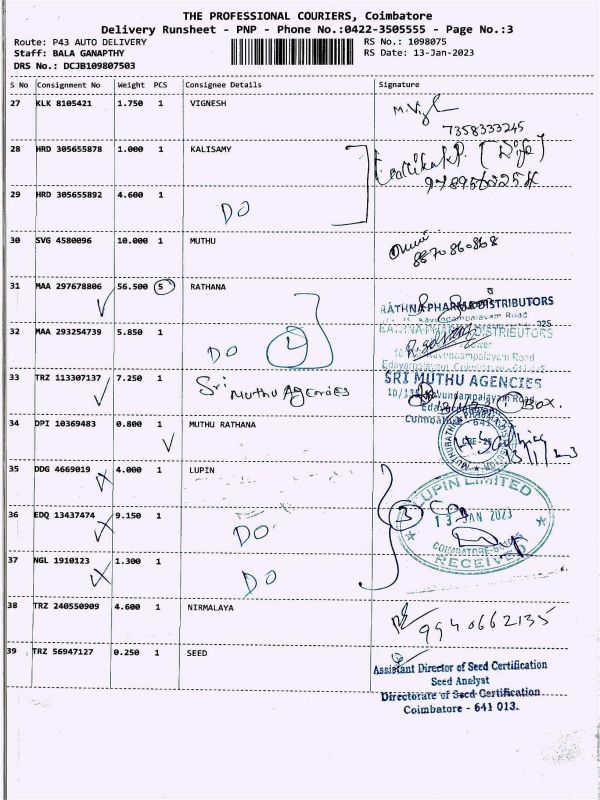 THE PROFESSIONAL COURIERS, Coimbatore
Delivery Runsheet - PNP - Phone No.:0422-3505555 - Page No.:3
Route: P43 AUTO DELIVERY RS No.: 1098075
Staff: BALA GANAPTHY RS Date: 13-Jan-2023
DRS No.: DCJB109807503
S No Consignment No Weight PCS Consignee Details Signature
27 KLK 8105421 1.750 1 VIGNESH
7358333245
28 HRD 305655878 1.000 1 KALISAMY
29 HRD 305655892 4.600 1 DO
30 SVG 4580096 10.000 1 MUTHU
8870860868
31 MAA 297678806 56.500 5 RATHANA
RATHNA PHARMA DISTRIBUTORS
32 MAA 293254739 5.850 1 DO
RATHNA PHARMA DISTRIBUTORS
33 TRZ 113307137 7.250 1 Sri Muthu Agencies
SRI MUTHU AGENCIES
BOX.
34 DPI 10369483 0.800 1 MUTHU RATHANA
13/1/23
35 DDG 4669019 4.000 1 LUPIN
LUPIN LIMITED
36 EDQ 13437474 9.150 1 DO
3
13 JAN 2023
RECEIVED
37 NGL 1910123 1.300 1 DO
38 TRZ 240550909 4.600 1 NIRMALAYA
9940662135
39 TRZ 56947127 0.250 1 SEED
Assistant Director of Seed Certification
Seed Analyst
Directorate of Seed Certification
Coimbatore - 641 013.